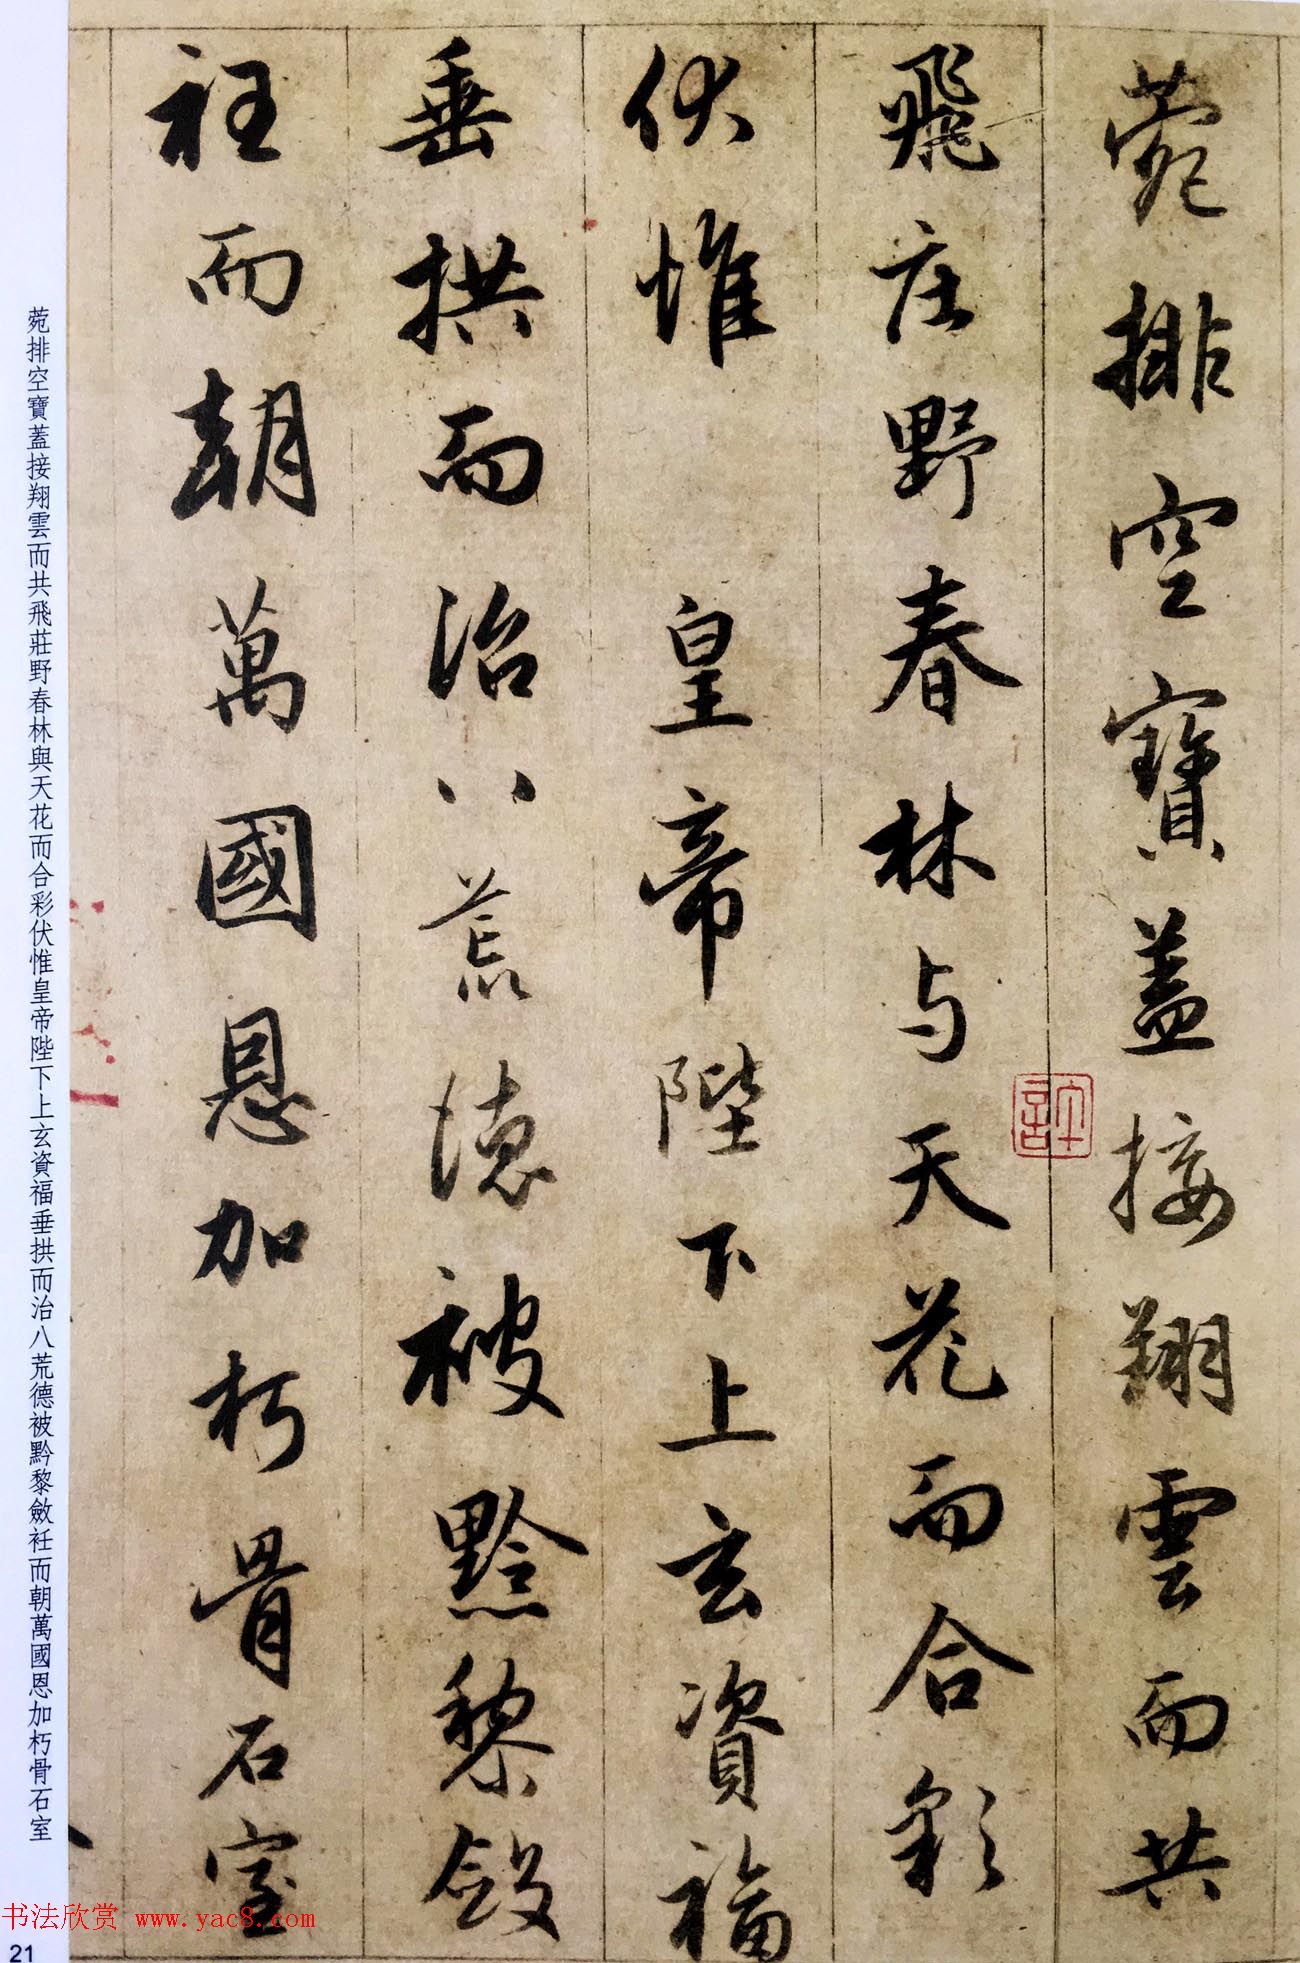 菀排空寶蓋接翔雲而共
飛庄野春林与天花而合彩
伏惟 皇帝陛下上玄資福
垂拱而治八荒德被黔黎斂
衽而朝萬國恩加朽骨石室
菀排空寶蓋接翔雲而共飛莊野春林與天花而合彩伏惟皇帝陛下上玄資福垂拱而治八荒德被黔黎斂衽而朝萬國恩加朽骨石室
书法欣赏 www.yac8.com
21